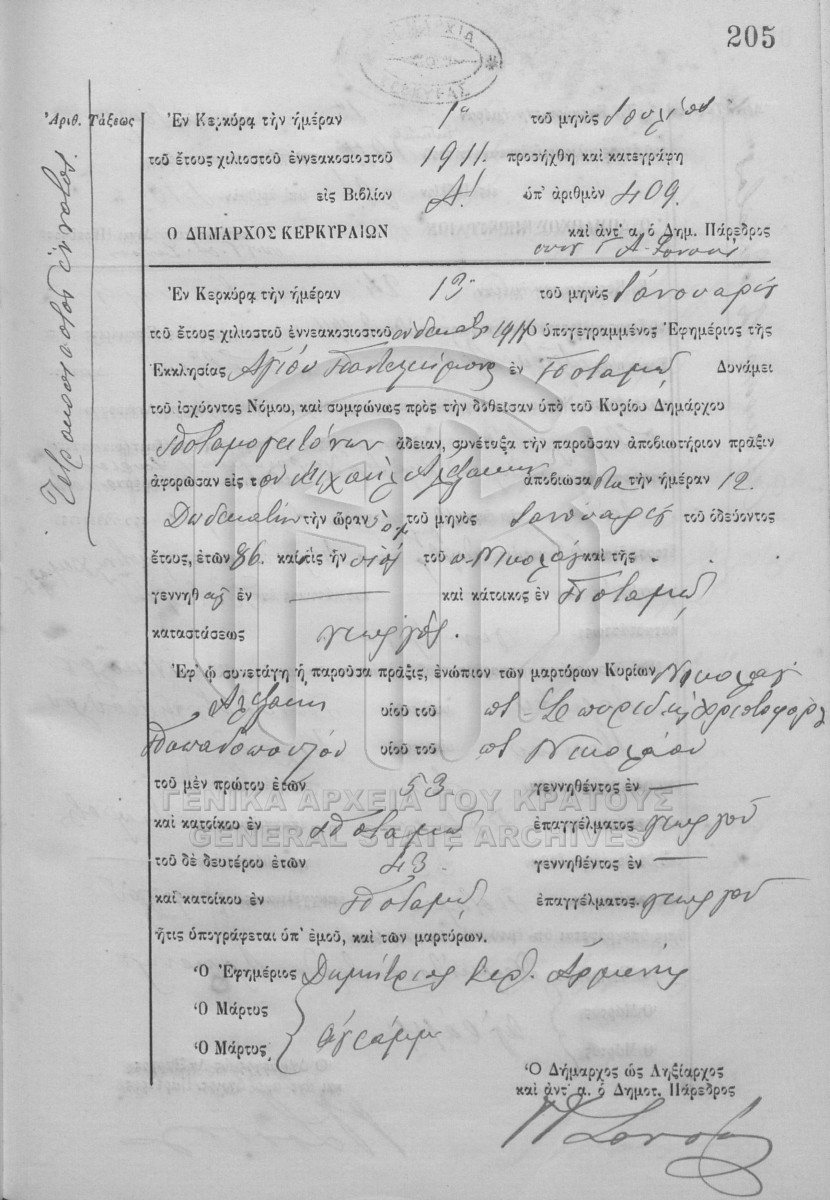 205
ΚΕΡΚΥΡΑΣ
Ἀριθ. Τάξεως
Τετρακοσιοστὸν ἔννατον.
Ἐν Κερκύρᾳ τὴν ἡμέραν 1η τοῦ μηνὸς Ἰουλίου
τοῦ ἔτους χιλιοστοῦ ἐννεακοσιοστοῦ 1911. προσήχθη καὶ κατεγράφη
εἰς Βιβλίον Α! ὑπ' ἀριθμὸν 409.
Ο ΔΗΜΑΡΧΟΣ ΚΕΡΚΥΡΑΙΩΝ καὶ ἀντ' α. ὁ Δημ. Πάρεδρος
Ἐν Κερκύρᾳ τὴν ἡμέραν 13 τοῦ μηνὸς Ἰανουαρίου
τοῦ ἔτους χιλιοστοῦ ἐννεακοσιοστοῦ ἑνδεκάτου 1911 Ὁ ὑπογεγραμμένος Ἐφημέριος τῆς
Ἐκκλησίας Ἁγίου Παντελεήμονος ἐν Ποταμῷ Δυνάμει
τοῦ ἰσχύοντος Νόμου, καὶ συμφώνως πρὸς τὴν δοθεῖσαν ὑπὸ τοῦ Κυρίου Δημάρχου
Ποταμογειτόνων ἄδειαν, συνέταξα τὴν παροῦσαν ἀποβιωτήριον πρᾶξιν
ἀφορῶσαν εἰς τὸν Μιχαὴλ ἀποβιώσαντα τὴν ἡμέραν 12.
Δωδεκάτην τὴν ὥραν τοῦ μηνὸς Ἰανουαρίου τοῦ ὁδεύοντος
ἔτους, ἐτῶν 86. καὶ τις ἦν υἱὸς τοῦ π. Νικολάου καὶ τῆς
γεννηθεὶς ἐν — καὶ κάτοικος ἐν Ποταμῷ
καταστάσεως γεωργός.
Ἐφ' ᾧ συνετάγη ἡ παροῦσα πρᾶξις, ἐνώπιον τῶν μαρτύρων Κυρίων Νικολάου
υἱοῦ τοῦ ποτ. Σπυρίδ. κ Χριστοφόρου
Παπαδοπούλου υἱοῦ τοῦ ποτ. Νικολάου
τοῦ μὲν πρώτου ἐτῶν 53. γεννηθέντος ἐν —
καὶ κατοίκου ἐν Ποταμῷ ἐπαγγέλματος γεωργοῦ
τοῦ δὲ δευτέρου ἐτῶν 43 γεννηθέντος ἐν —
καὶ κατοίκου ἐν Ποταμῷ ἐπαγγέλματος. γεωργοῦ
ἥτις ὑπογράφεται ὑπ' ἐμοῦ, καὶ τῶν μαρτύρων.
Ὁ Ἐφημέριος Δημήτριος Ἱερ. Ἀρμενης
Ὁ Μάρτυς
Ὁ Μάρτυς ἀγράμμ.
Ὁ Δήμαρχος ὡς Ληξίαρχος
καὶ ἀντ' α. ὁ Δημοτ. Πάρεδρος
ΓΕΝΙΚΑ ΑΡΧΕΙΑ ΤΟΥ ΚΡΑΤΟΥΣ
GENERAL STATE ARCHIVES